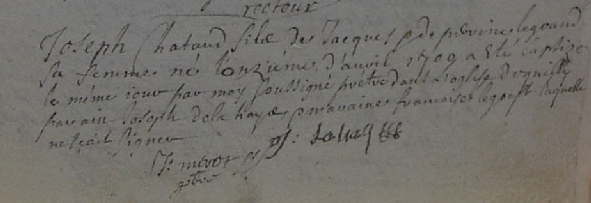 recteur
Joseph Chataud file des Jacques p de perrine legrand
sa femme né l'onzieme d'auril 1709 a ete baptise
le même jour par moy soussigné prêtre dans l'eglise de guilly
parain Joseph de la haye marainne francoise legoff laquelle
ne scait signer
prtre